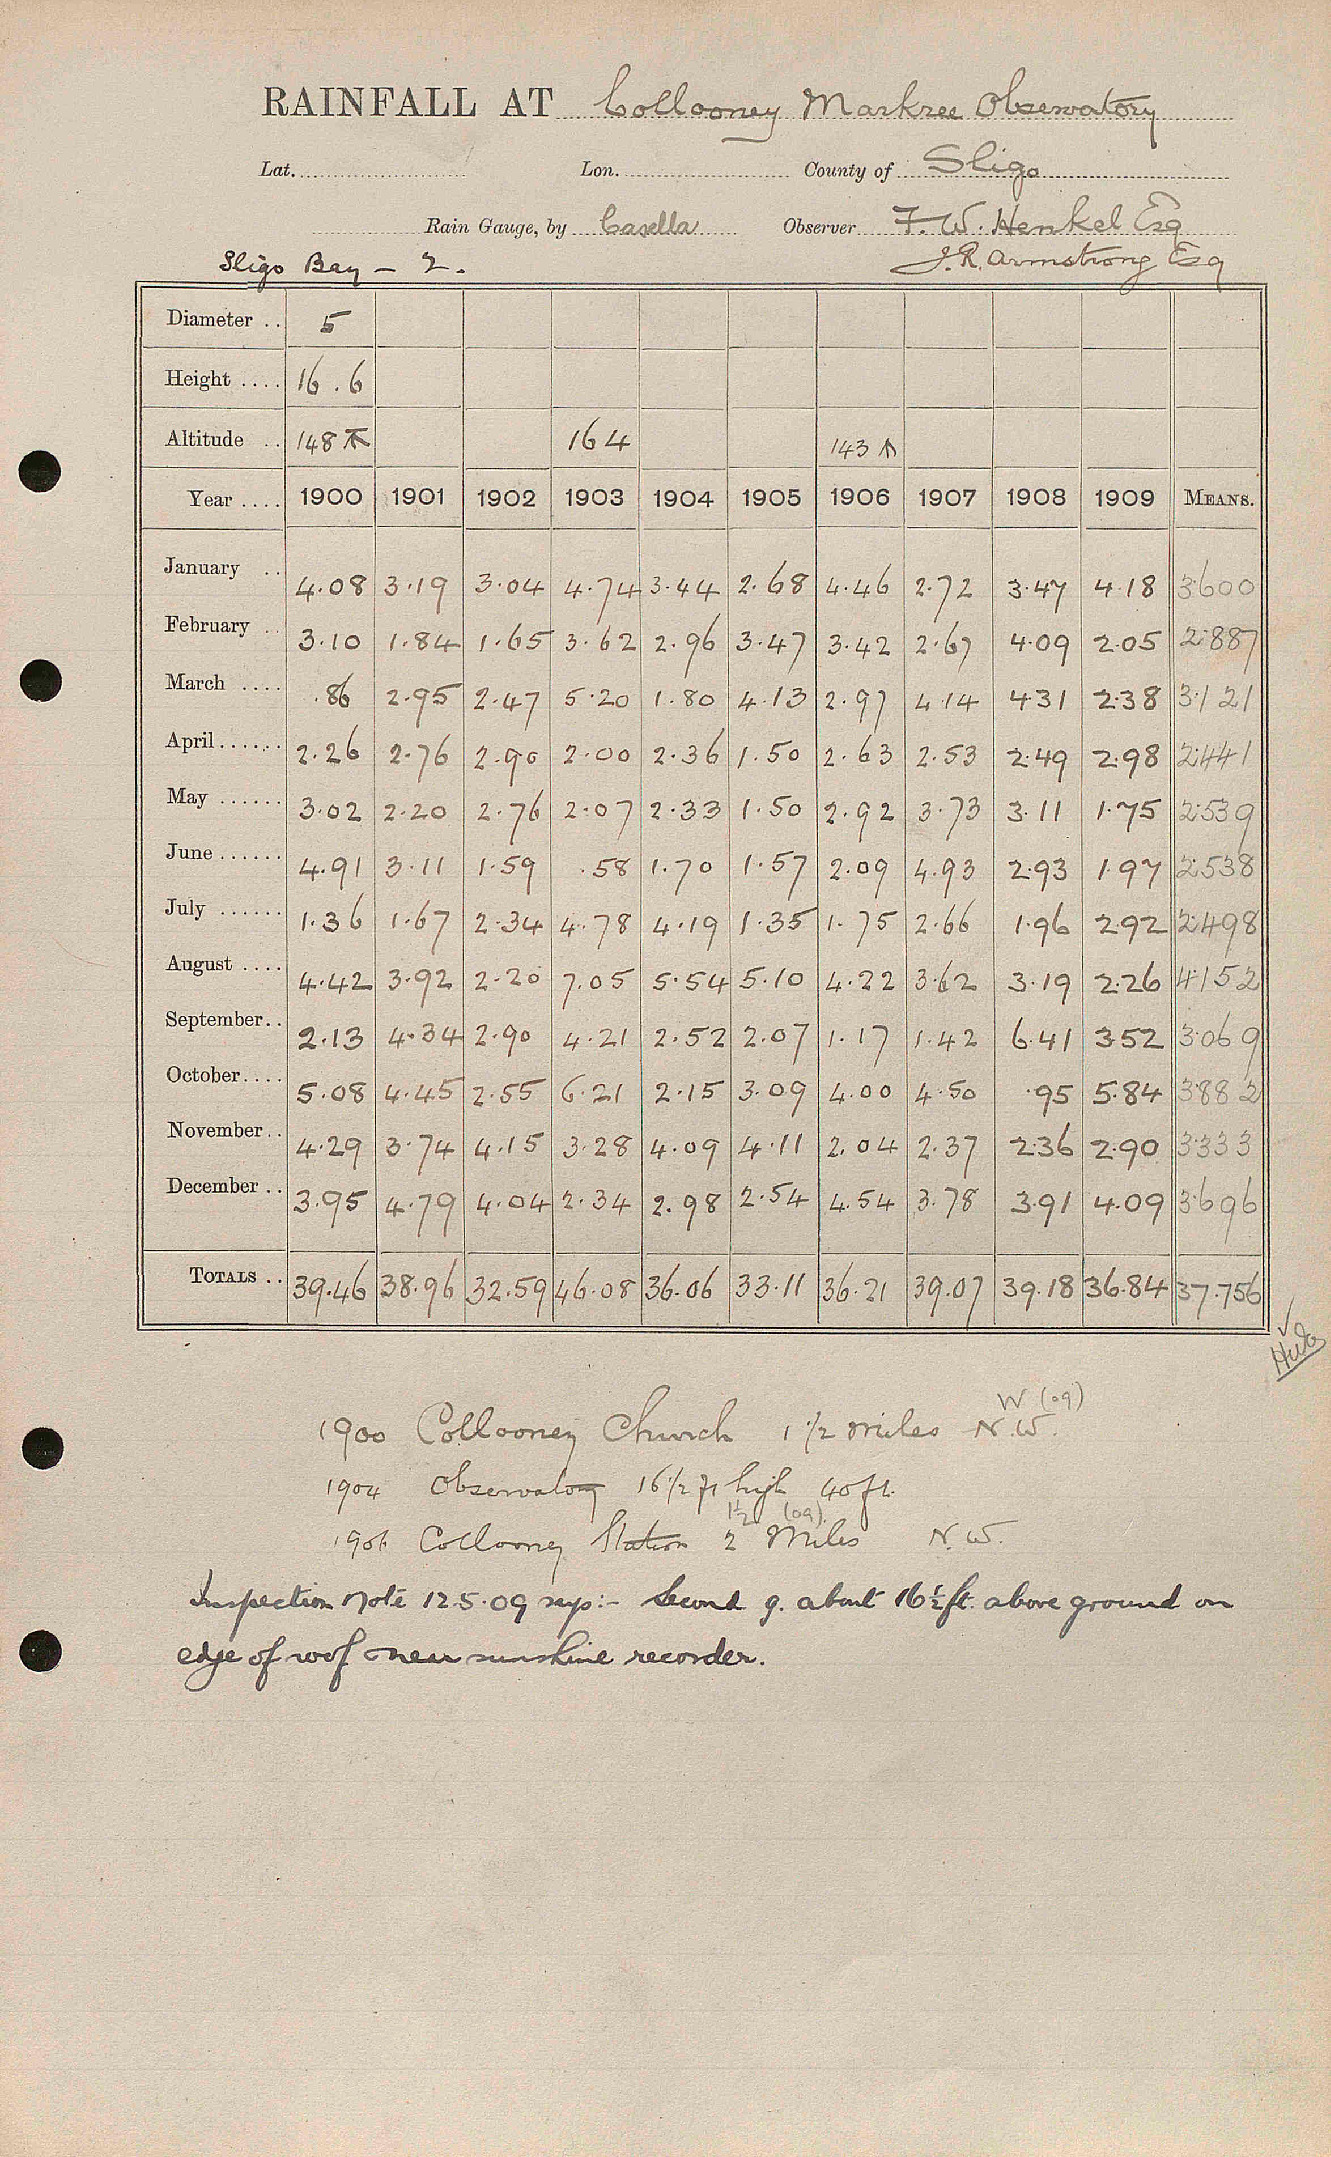 RAINFALL AT Collooney Markree Observatory
Lat. Lon. County of Sligo
Rain Gauge, by Casella Observer F. W. Henkel Esq
Sligo Bay – 2. J. R. Armstrong Esq
Diameter .. 5
Height .... 16.6
Altitude .. 148 ↑ 164 143 ↑
Year .... 1900 1901 1902 1903 1904 1905 1906 1907 1908 1909 MEANS.
January .. 4.08 3.19 3.04 4.74 3.44 2.68 4.46 2.72 3.47 4.18 3.600
February .. 3.10 1.84 1.65 3.62 2.96 3.47 3.42 2.67 4.09 2.05 2.887
March .... .86 2.95 2.47 5.20 1.80 4.13 2.97 4.14 4.31 2.38 3.121
April ...... 2.26 2.76 2.90 2.00 2.36 1.50 2.63 2.53 2.49 2.98 2.441
May ...... 3.02 2.20 2.76 2.07 2.33 1.50 2.92 3.73 3.11 1.75 2.539
June ...... 4.91 3.11 1.59 .58 1.70 1.57 2.09 4.93 2.93 1.97 2.538
July ...... 1.36 1.67 2.34 4.78 4.19 1.35 1.75 2.66 1.96 2.92 2.498
August .... 4.42 3.92 2.20 7.05 5.54 5.10 4.22 3.62 3.19 2.26 4.152
September .. 2.13 4.34 2.90 4.21 2.52 2.07 1.17 1.42 6.41 3.52 3.069
October .... 5.08 4.45 2.55 6.21 2.15 3.09 4.00 4.50 .95 5.84 3.882
November .. 4.29 3.74 4.15 3.28 4.09 4.11 2.04 2.37 2.36 2.90 3.333
December .. 3.95 4.79 4.04 2.34 2.98 2.54 4.54 3.78 3.91 4.09 3.696
TOTALS .. 39.46 38.96 32.59 46.08 36.06 33.11 36.21 39.07 39.18 36.84 37.756
W (09)
1900 Collooney Church 1 1/2 miles N.W.
1904 Observatory 16 1/2 ft high 40 ft.
1½ (09)
1906 Collooney Station 2 Miles N.W.
Inspection Note 12.5.09 says:- Second g. about 16½ ft. above ground on
edge of roof near sunshine recorder.